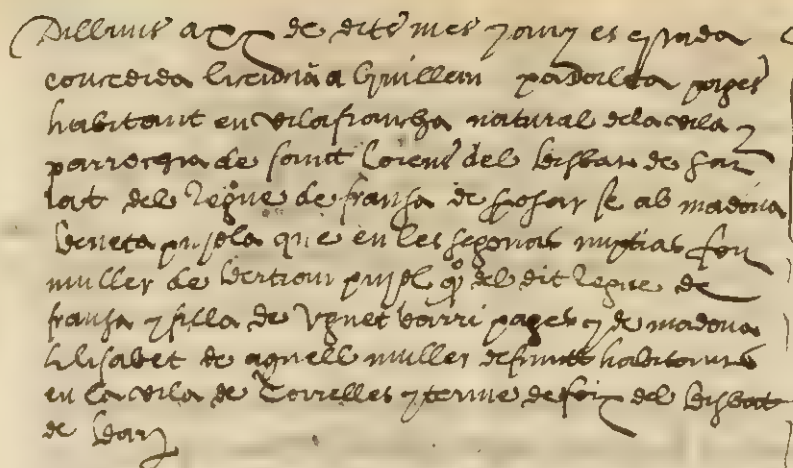 Dillums a xx de dit mes y any es estada
concedida licencia a Guillem padalea pages
habitant en vilafrancha natural dela vila y
parrocqia de sanct Lorens del bisbat de Sar
lat del regne de fransa de sposar se ab madona
beneta pujola que en les segonas nuptias fou
muller de bertran pujol qº del dit regne de
fransa y filla de Ugnet barri pages y de madona
Elisabet de aquell muller defuncts habitants
en la vila de Torrelles y terme de foix del bisbat
de bar